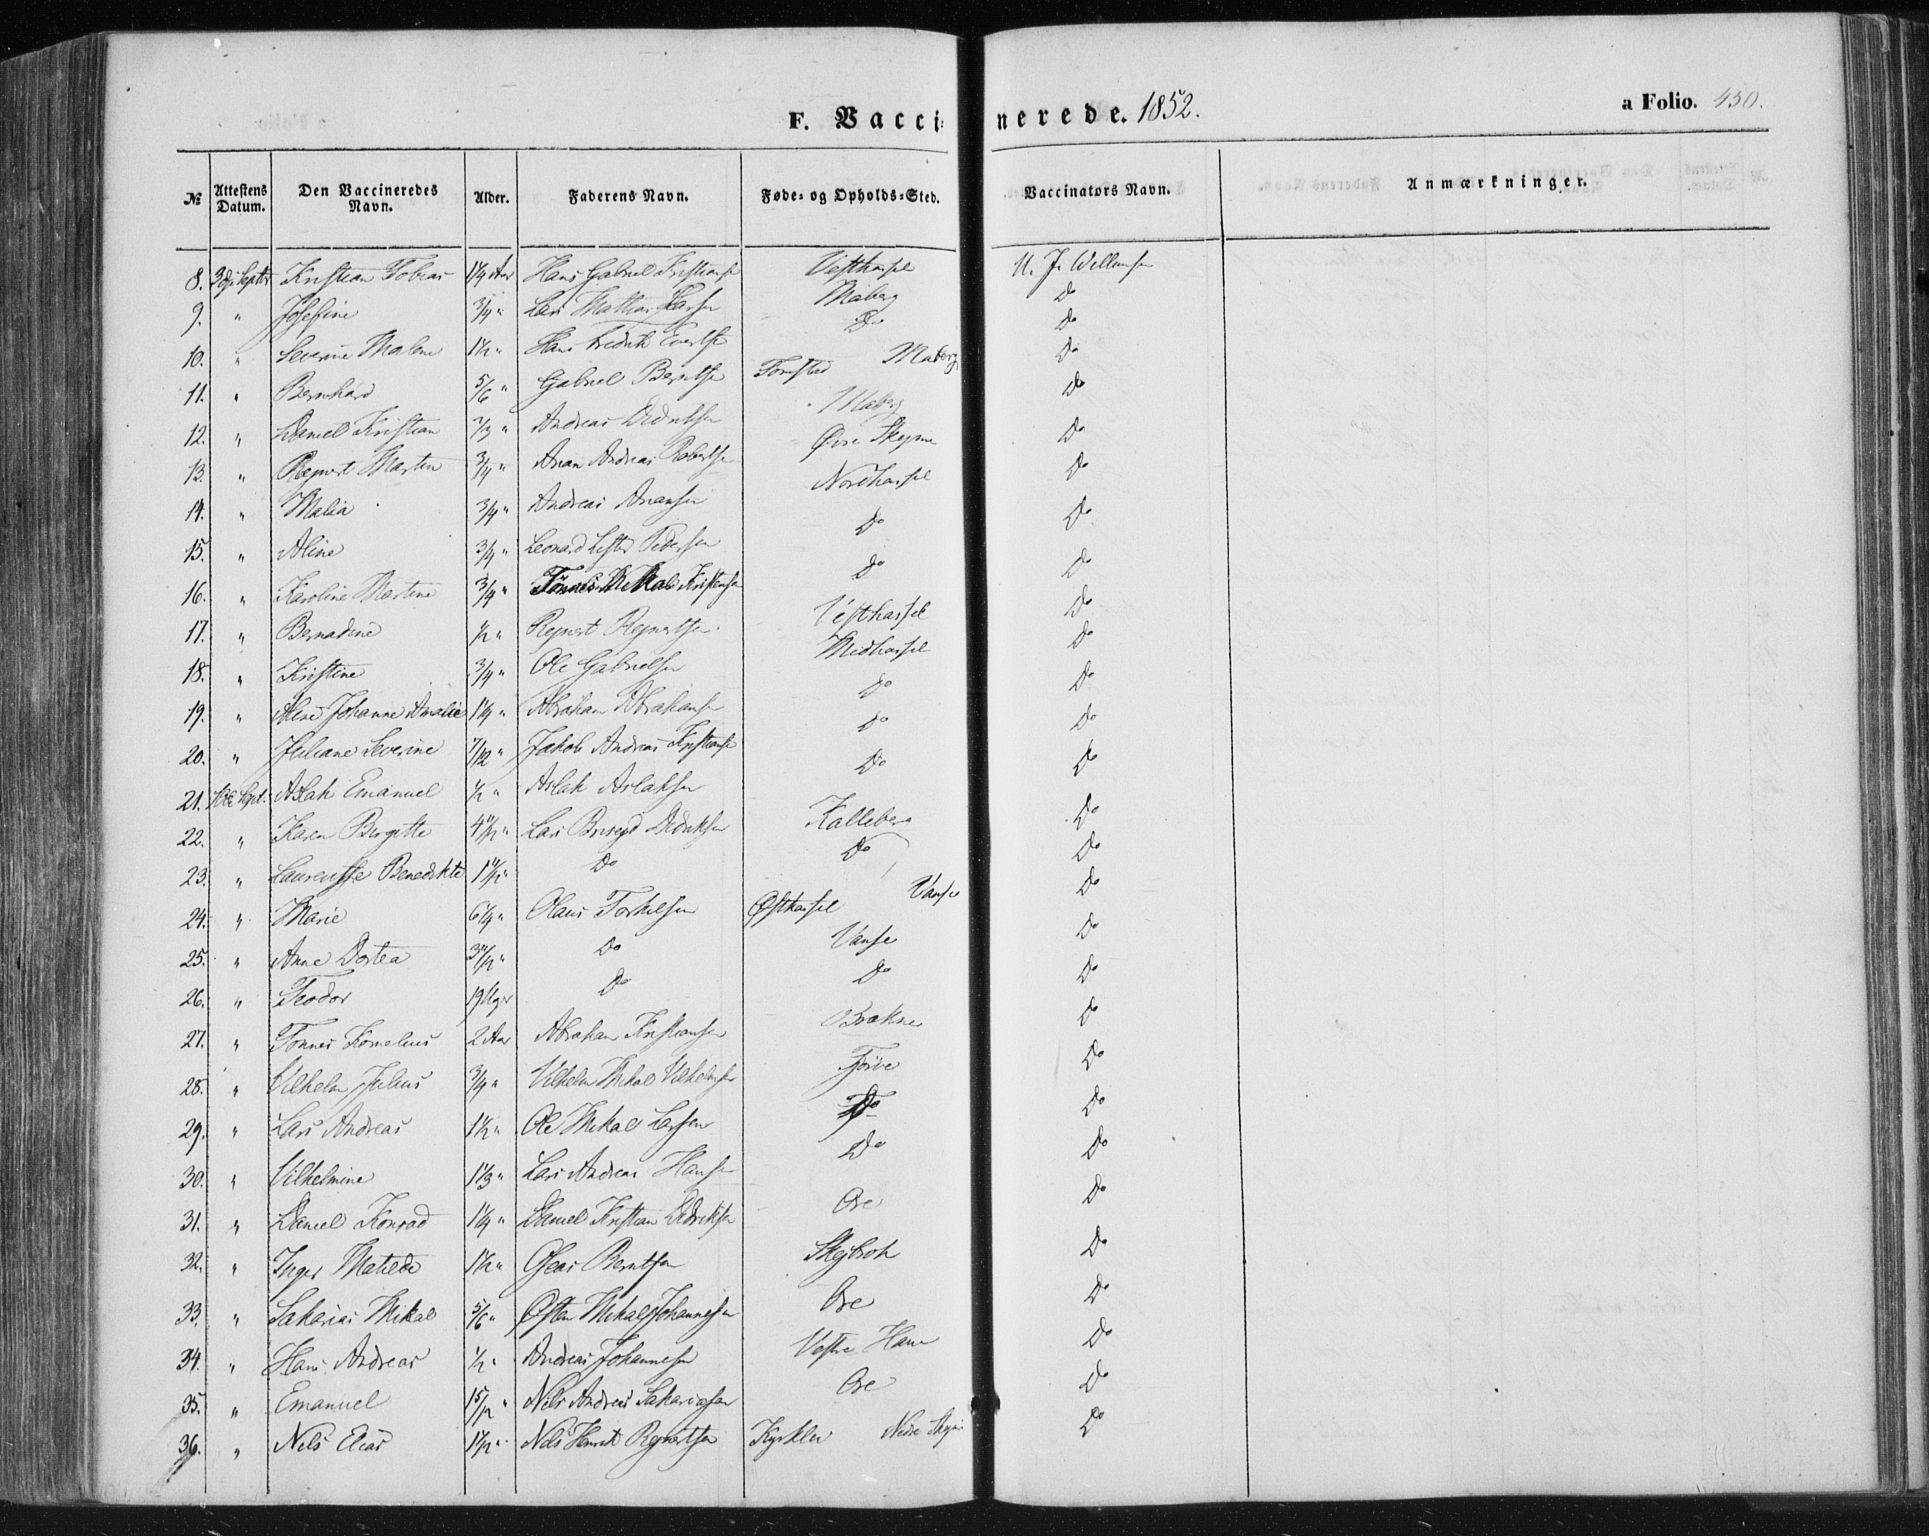 F. Vaccinerede. 1852.
a Folio. 450.
№ Attestens Datum. Den Vaccineredes Navn. Alder. Faderens Navn. Føde- og Opholds-Sted. Vaccinators Navn. Anmærkninger.
8. Septbr Kristian Tobias 1¼ Aar Hans Gabriel Kristians. Vesthassel Willumsen
9. " Josefine ¾ " Lars Mathias Larsen Maberg Do
10. " Severine Malene 1½ " Hans Fredrik Evertsen Do Do
11. " Bernhard 5/6 " Gabriel Berntsen Tomstad Maberg Do
12. " Daniel Kristian 2/3 " Andreas Didriksen Maberg Do
13. " Regnert Martin ¾ " Anan Andreas Robertsen Øvre Skeime Do
14. " Malia ¾ " Andreas Anansen Nordhassel Do
15. " Aline ¾ " Leonard Lister Pedersen Do Do
16. " Karoline Martine ¾ " Tønnes Mikal Kristensen Do Do
17. " Bernadine ½ " Regnert Regnertsen Vesthassel Do
18. " Kristine ¾ " Ole Gabrielsen Midhassel Do
19. " Aline Johanne Amalie 1¼ " Abraham Abrahams. Do Do
20. " Juliane Severine 7/12 " Jakob Andreas Kristians. Do Do
21. 10de Sept. Aslak Emanuel ½ " Aslak Aslaksen Do Do
22. " Karen Bergitte 4 " Lars Didriksen Kalleberg Do
23. " Laurentse Benedikte 1 " Do Do Do
24. " Marie 6¼ " Olaus Torkelsen Østhassel Vanse Do
25. " Anne Dortea 3 " Do Vanse Do
26. " Teodor 19 Uger Do Do Do
27. " Tønnes Kornelius 2 Aar Abraham Kristiansen Brekne Do
28. " Vilhelm Julius ¾ " Vilhelm Mikal Vilhelmsen Tjørve Do
29. " Lars Andreas 1½ " Ole Mikal Larsen Do Do
30. " Vilhelmine 1⅓ " Lars Andreas Hansen Do Do
31. " Daniel Konrad 1¼ " Daniel Kristian Didriksen Ore Do
32. " Inger Matilde 1½ " Elias Berntsen Skeibrok Do
33. " Sakarias Mikal 5/6 " Østen Mikal Johannesen Ore Do
34. " Hans Andreas ½ " Andreas Johannesen Vestre Ham Do
35. " Emanuel 1 5/12 " Nils Andreas Sakariasen Ore Do
36. " Nels Elias 1½ " Nels Henrik Regnertsen Nedre Do